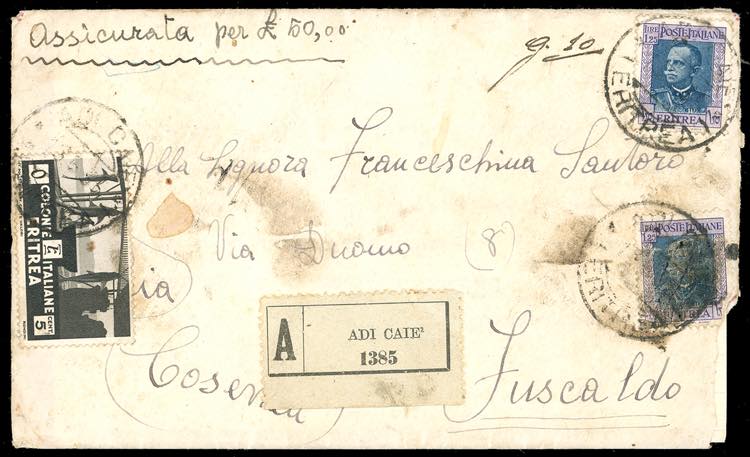 Assicurata per £ 50,00
g. 10
LIRE POSTE ITALIANE
1.25
ERITREA
ERITREA
Alla Signora Franceschina Santoro
Via Duomo (8)
LIRE POSTE ITALIANE
1.25
COLONIE ITALIANE
ERITREA
CENT 5
A
ADI CAIE²
1385
Cosenza Fuscaldo